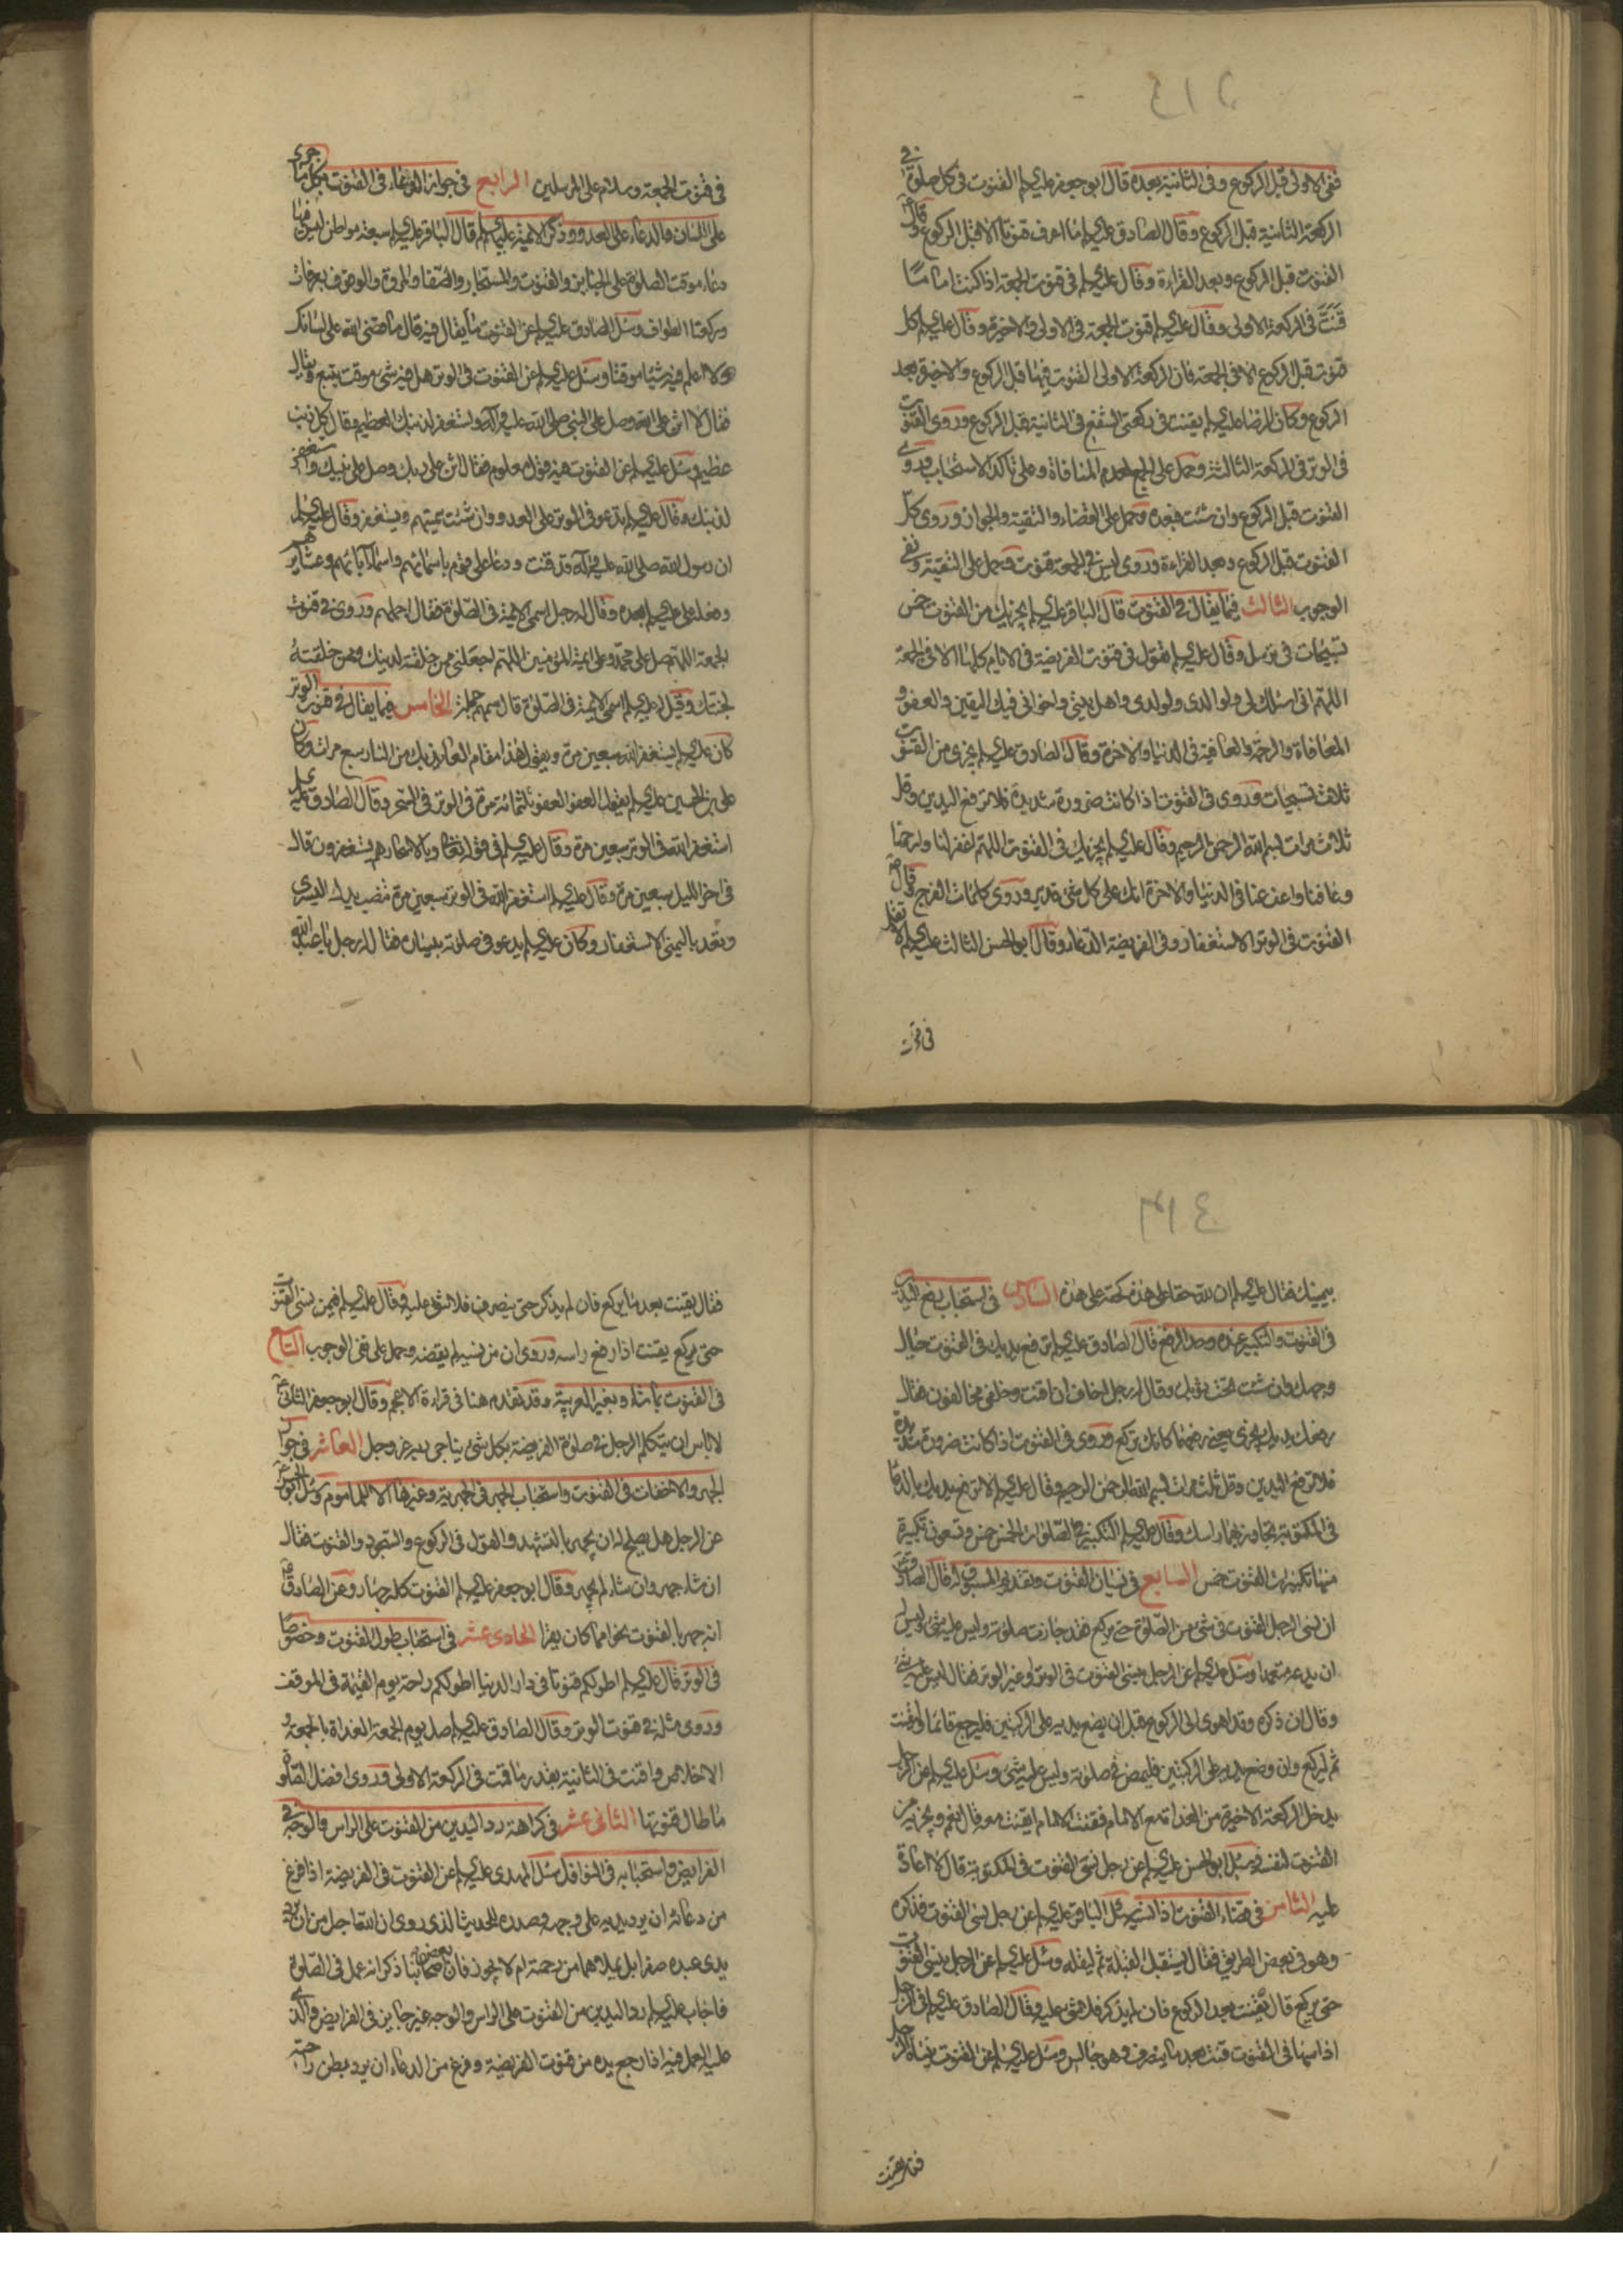 ففى الاولى قبل الركوع وفى الثانية بعده قال ابو جعفر عليه السلم القنوت فى كل صلوة فى
الركعة الثانية قبل الركوع وقال الصادق عليه السلم ما اعرف قنوتا الا قبل الركوع وقال
القنوت قبل الركوع وبعد القراءة وقال عليه السلم فى قنوت الجمعة اذا كنت اماما
قنت فى الركعة الاولى وقال عليه السلم قنوت الجمعة فى الاولى والاخرة وقال عليه السلم كل
قنوت قبل الركوع الا فى الجمعة فان الركعة الاولى القنوت فيها قبل الركوع والاخيرة بعد
الركوع وكان الرضا عليه السلم يقنت فى ركعتى الشفع فى الثانية قبل الركوع وروى القنوت
فى الوتر فى الركعة الثالثة وحمل على الجمع لعدم المنافاة وعلى تاكد الاستحباب وروى
القنوت قبل الركوع وان شئت فبعده وحمل على القضاء والتقية والجواز وروى كل
القنوت قبل الركوع وبعد القراءة وروى ليس فى الجمعة قنوت وحمل على التقية ونفى
الوجوب الثالث فيما يقال فى القنوت قال الباقر عليه السلم يجزيك من القنوت خمس
تسبيحات فى ترسل وقال عليه السلم تقول فى قنوت الفريضة فى الايام كلها الا فى الجمعة
اللهم انى اسئلك لى ولوالدى ولولدى واهل بيتى واخوانى فيك اليقين والعفو و
المعافاة والرحمة والعافية فى الدنيا والاخرة وقال الصادق عليه السلم يجزى من القنوت
ثلاث تسبيحات وروى فى القنوت اذا كانت ضرورة شديدة فلا ترفع اليدين وقل
ثلاث مرات بسم الله الرحمن الرحيم وقال عليه السلم يجزيك فى القنوت اللهم اغفر لنا وارحمنا
وعافنا واعف عنا فى الدنيا والاخرة انك على كل شئ قدير وروى كلمات الفرج وقال
القنوت فى الوتر الاستغفار وفى الفريضة الدعاء وقال ابو الحسن الثالث عليه السلم لا تقل
فى قنوت
فى قنوت الجمعة وسلام على المرسلين الرابع فى جواز الدعاء فى القنوت بكل ما جرى
على اللسان والدعاء على العدو وذكر الائمة عليهم السلم قال الباقر عليه السلم سبعة مواطن ليس فيها
دعاء موقت الصلوة على الجنايز والقنوت والمستجار والصفا والمروة والوقوف بعرفات
وركعتا الطواف وسئل الصادق عليه السلم عن القنوت ما يقال فيه قال ما قضى الله على لسانك
ولا اعلم فيه شيئا موقتا وسئل عليه السلم عن القنوت فى الوتر هل فيه شئ موقت يتبع ويقال
فقال لا اثن على الله وصل على النبى صلى الله عليه وآله واستغفر لذنبك العظيم وقال كل ذنب
عظيم وسئل عليه السلم عن القنوت فيه قول معلوم فقال اثن على ربك وصل على نبيك واستغفر
لذنبك وقال عليه السلم تدعو فى الوتر على العدو وان شئت سميتهم وتستغفر وقال عليه السلم
ان رسول الله صلى الله عليه وآله قد قنت ودعا على قوم باسمائهم واسماء آبائهم وعشايرهم
وفعله على عليه السلم بعده وقال له رجل اسمى الائمة فى الصلوة فقال اجملهم وروى فى قنوت
الجمعة اللهم صل على محمد وعلى ائمة المؤمنين اللهم اجعلنى ممن خلقته لدينك وممن خلقته
لجنتك وقيل له عليه السلم اسمى الائمة فى الصلوة قال سمهم جملة الخامس فيما يقال فى قنوت الوتر
كان عليه السلم يستغفر الله سبعين مرة ويقول هذا مقام العائذ بك من النار سبع مرات وكان
على بن الحسين عليه السلم يقول العفو العفو ثلثمائة مرة فى الوتر فى السحر وقال الصادق عليه السلم
استغفر الله فى الوتر سبعين مرة وقال عليه السلم فى قوله تعالى وبالاسحار هم يستغفرون قال
فى اخر الليل سبعين مرة وقال عليه السلم استغفر الله فى الوتر سبعين مرة تنصب يدك اليسرى
وتعد باليمنى الاستغفار وكان عليه السلم يدعو فى صلوته بيساره فقال له رجل يا عبد الله
بيمينك فقال عليه السلم ان لله حقا على هذه كحقه على هذه السادس فى استحباب رفع اليدين
فى القنوت والتكبير عنده وحد الرفع قال الصادق عليه السلم ترفع يديك فى القنوت حيال
وجهك وان شئت تحت ثوبك وقال له رجل اخاف ان اقنت وخلفى مخالفون فقال
رفعك يديك يجزى يعنى رفعهما كانك تركع وروى فى القنوت اذا كانت ضرورة شديدة
فلا ترفع اليدين وقل ثلث مرات بسم الله الرحمن الرحيم وقال عليه السلم لا ترفع يديك بالدعاء
فى المكتوبة تجاوز بهما راسك وقال عليه السلم التكبير فى الصلوات الخمس خمس وتسعون تكبيرة
منها تكبيرات القنوت خمس السابع فى نسيان القنوت وتقديم المسبوق له قال الصادق
ان نسى الرجل القنوت فى شئ من الصلوة حتى يركع فقد جازت صلوته وليس عليه شئ وليس له
ان يدعه متعمدا وسئل عليه السلم عن الرجل ينسى القنوت فى الوتر او غير الوتر فقال ليس عليه شئ
وقال ان ذكره وقد اهوى الى الركوع قبل ان يضع يديه على الركبتين فليرجع قائما وليقنت
ثم ليركع وان وضع يديه على الركبتين فليمض فى صلوته وليس عليه شئ وسئل عليه السلم عن الرجل
يدخل الركعة الاخيرة من الغداة مع الامام فقنت الامام ايقنت معه قال نعم ويجزيه من
القنوت لنفسه وسئل ابو الحسن عليه السلم عن رجل نسى القنوت فى المكتوبة قال لا اعادة
عليه الثامن فى قضاء القنوت اذا نسيه سئل الباقر عليه السلم عن رجل نسى القنوت فذكره
وهو فى بعض الطريق فقال يستقبل القبلة ثم ليقله وسئل عليه السلم عن الرجل ينسى القنوت
حتى يركع قال يقنت بعد الركوع فان لم يذكر فلا شئ عليه وقال الصادق عليه السلم فى الرجل
اذا سها فى القنوت قنت بعد ما ينصرف وهو جالس وسئل عليه السلم عن القنوت ينساه الرجل
فقال يقنت
فقال يقنت بعد ما يركع فان لم يذكر حتى ينصرف فلا شئ عليه وقال عليه السلم فيمن نسى القنوت
حتى يركع يقنت اذا رفع راسه وروى ان من نسيه لم يقضه وحمل على نفى الوجوب التاسع
فى القنوت بما شاء وبغير العربية وقد تقدم هنا فى قراءة الاعجم وقال ابو جعفر الثانى
لا باس ان يتكلم الرجل فى صلوة الفريضة بكل شئ يناجى به ربه عز وجل العاشر فى جواز
الجهر والاخفات فى القنوت واستحباب الجهر فى الجهرية وغيرها الا للماموم وسئل ابو الحسن
عن الرجل هل يصلح له ان يجهر بالتشهد والقول فى الركوع والسجود والقنوت فقال
ان شاء جهر وان شاء لم يجهر وقال ابو جعفر عليه السلم القنوت كله جهار وعن الصادق
انه جهر بالقنوت نحوا مما كان يقرا الحادى عشر فى استحباب طول القنوت وخصوصا
فى الوتر قال عليه السلم اطولكم قنوتا فى دار الدنيا اطولكم راحة يوم القيمة فى الموقف
وروى مثله فى قنوت الوتر وقال الصادق عليه السلم صل يوم الجمعة الغداة بالجمعة و
الاخلاص واقنت فى الثانية بقدر ما قمت فى الركعة الاولى وروى افضل الصلوة
ما طال قنوتها الثانى عشر فى كراهة رد اليدين من القنوت على الراس والوجه فى
الفرايض واستحبابه فى النوافل سئل المهدى عليه السلم عن القنوت فى الفريضة اذا فرغ
من دعائه ان يرد يديه على وجهه وصدره للحديث الذى روى ان الله اجل من ان يرد
يدى عبده صفرا بل يملاهما من رحمته ام لا يجوز فان بعض اصحابنا ذكر انه عمل فى الصلوة
فاجاب عليه السلم رد اليدين من القنوت على الراس والوجه غير جايز فى الفرايض والذى
عليه العمل فيه اذا رجع يده من قنوت الفريضة وفرغ من الدعاء ان يرد بطن راحتيه